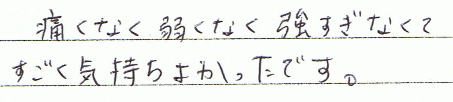 痛くなく弱くなく強すぎなくて
すごく気持ちよかったです。